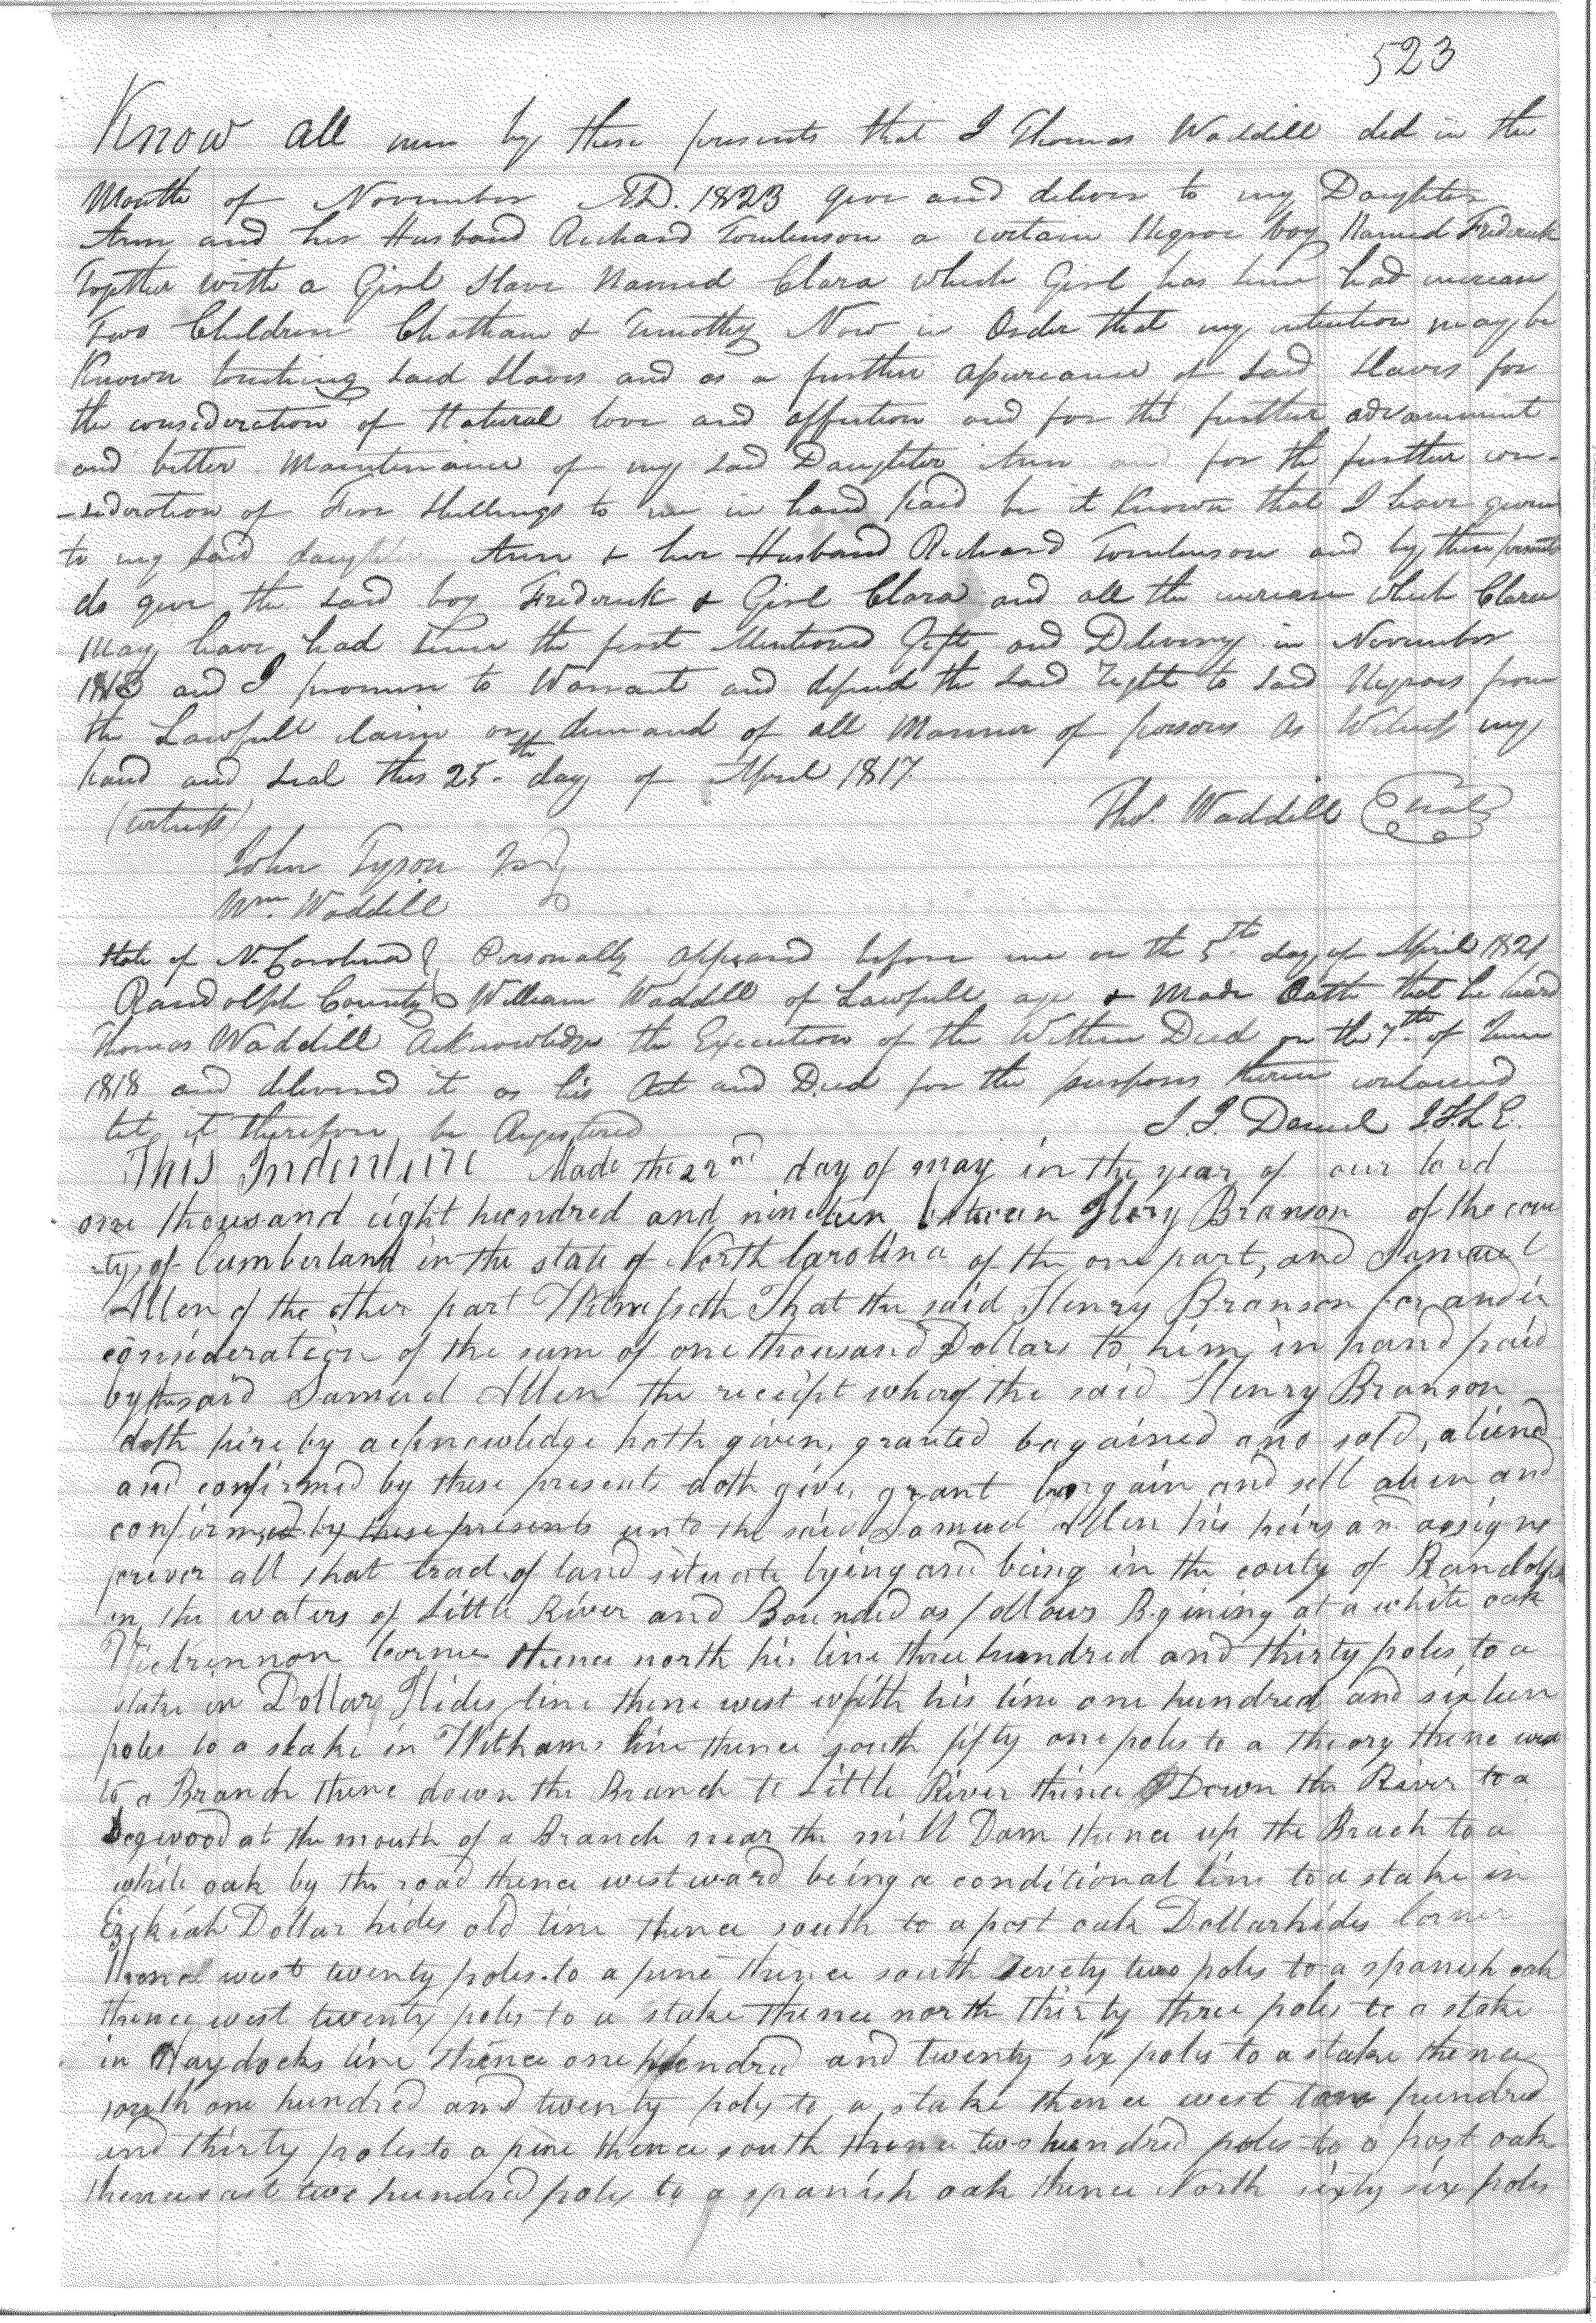 523
Know all men by these presents that I Thomas Waddill did in the
Month of November AD. 1823 give and deliver to my Daughter
Ann and her Husband Richard Tomlinson a certain Negroe boy Named Frederick
Together with a Girl Slave Named Clara which Girl has since had increase
Two Children Chatham & Timothy Now in Order that my intention may be
Known touching said Slaves and as a further assureance of said Slaves for
the consideration of Natural love and affection and for the further advancment
and better Maintenance of my said Daughter Ann and for the further con-
-sideration of Five Shillings to me in hand paid be it Known that I have given
to my said daughter Ann & her Husband Richard Tomlinson and by these presents
do give the said boy Frederick & Girl Clara and all the increase which Clara
May have had since the first Mentioned Gift and Delivery in November
and I promise to Warrant and defend the said right to said Negroes from
the Lawfull claim or demand of all Manner of persons As Witness my
hand and seal this 25th day of April 1817.
(witness) Thos. Waddill (seal)
John Tyson
Wm. Waddill
State of N. Carolina } Personally appeared before me on the 5th day of April 1821
Randolph County } William Waddill of Lawfull age & Made Oath that he heard
Thomas Waddill Acknowledge the Execution of the Within Deed on the 7th of June
1818 and delivered it as his Act and Deed for the purposes therein contained
let it therefore be Registered J. J. Daniel J.S.L.E.
This Indenture Made the 22nd day of may in the year of our lord
one thousand eight hundred and nineteen between Henry Branson of the coun
-ty of Cumberland in the state of North Carolina of the one part, and Samuel
Allen of the other part Witnesseth That the said Henry Branson for and in
consideration of the sum of one thousand Dollars to him in hand paid
by the said Samuel Allen the receipt wherof the said Henry Branson
doth hereby acknowledge hath given, granted bagained and sold, aliened
and confirmed by these presents doth give, grant bargain and sell alien and
confirmed by these presents unto the said Samuel Allen his heirs an assigns
forever all that tract of land situate lying and being in the couty of Randolph
on the waters of Little River and Bounded as follows Begining at a white oak
corner thence north his line three hundred and thirty poles to a
stake in Dollar Hides line thence west with his line one hundred and sixteen
poles to a stake in Withams line thence south fifty one poles to a thence west
to a Branch thence down the Branch to Little River thence Down the River to a
Dogwood at the mouth of a Branch near the mill Dam thence up the Brach to a
white oak by the road thence westward being a conditional line to a stake in
Ezekiah Dollar hides old line thence south to a post oak Dollarhides Corner
thence west twenty poles to a pine thence south sevety two poles to a spanish oak
thence west twenty poles to a stake thence north thirty three poles to a stake
in Haydocks line thence one hundred and twenty six poles to a stake thence
south one hundred and twenty poles to a stake thence west two hundred
and thirty poles to a pine thence south thence two hundred poles to a post oak
thence east two hundred poles to a spanish oak thence North sixty six poles